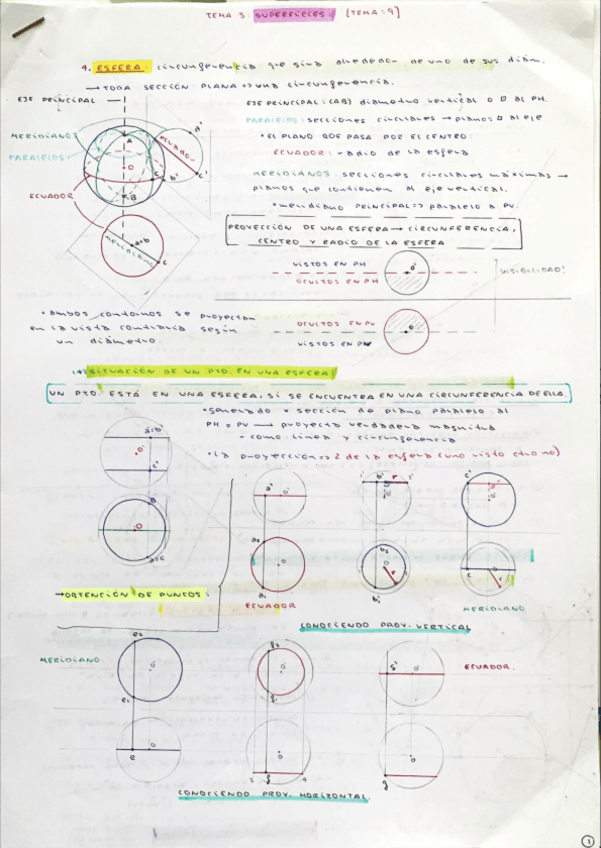 TEMA 3: SUPERFICIES. [TEMA: 9]
4. ESFERA: circunferencia que gira alrededor de uno de sus diám.
→ TODA SECCIÓN PLANA => una circunferencia.
EJE PRINCIPAL
MERIDIANOS
PARALELOS
ECUADOR
A
B
C
O
a'
b'
c'
ecuador
meridiano
a=b
c
EJE PRINCIPAL: (AB) diámetro vertical o al PH.
PARALELOS: secciones circulares → planos al eje
• EL PLANO QUE PASA POR EL CENTRO:
ECUADOR: radio de la esfera
MERIDIANOS: secciones circulares máximas →
planos que contienen al eje vertical.
• meridiano PRINCIPAL => paralelo a PV.
PROYECCIÓN DE UNA ESFERA → CIRCUNFERENCIA,
CENTRO Y RADIO DE LA ESFERA
VISTOS EN PH
OCULTOS EN PH
o'
VISIBILIDAD!
OCULTOS EN PV
VISTOS EN PV
o
• ambos contornos se proyectan
en la vista contraria según
un diámetro.
(4) SITUACIÓN DE UN PTO. EN UNA ESFERA
UN PTO. ESTÁ EN UNA ESFERA, SI SE ENCUENTRA EN UNA CIRCUNFERENCIA DE ELLA.
• generado x sección de plano paralelo al
PH o PV → proyecta verdadera magnitud
- como línea y circunferencia
• La proyección => 2 de la esfera (uno visto otro no)
a'=b'
c'
o'
B
O
a=c
→ OBTENCIÓN DE PUNTOS:
a'
o'
a2
o
a1
ECUADOR
b'
r
o'
b2
b1
r
c'
o'
c
r
MERIDIANO
CONOCIENDO PROY. VERTICAL
MERIDIANO
e2
o'
e1
e
o
g2
o'
g1
g
o
g'
o'
ECUADOR.
o
g
CONOCIENDO PROY. HORIZONTAL.
1